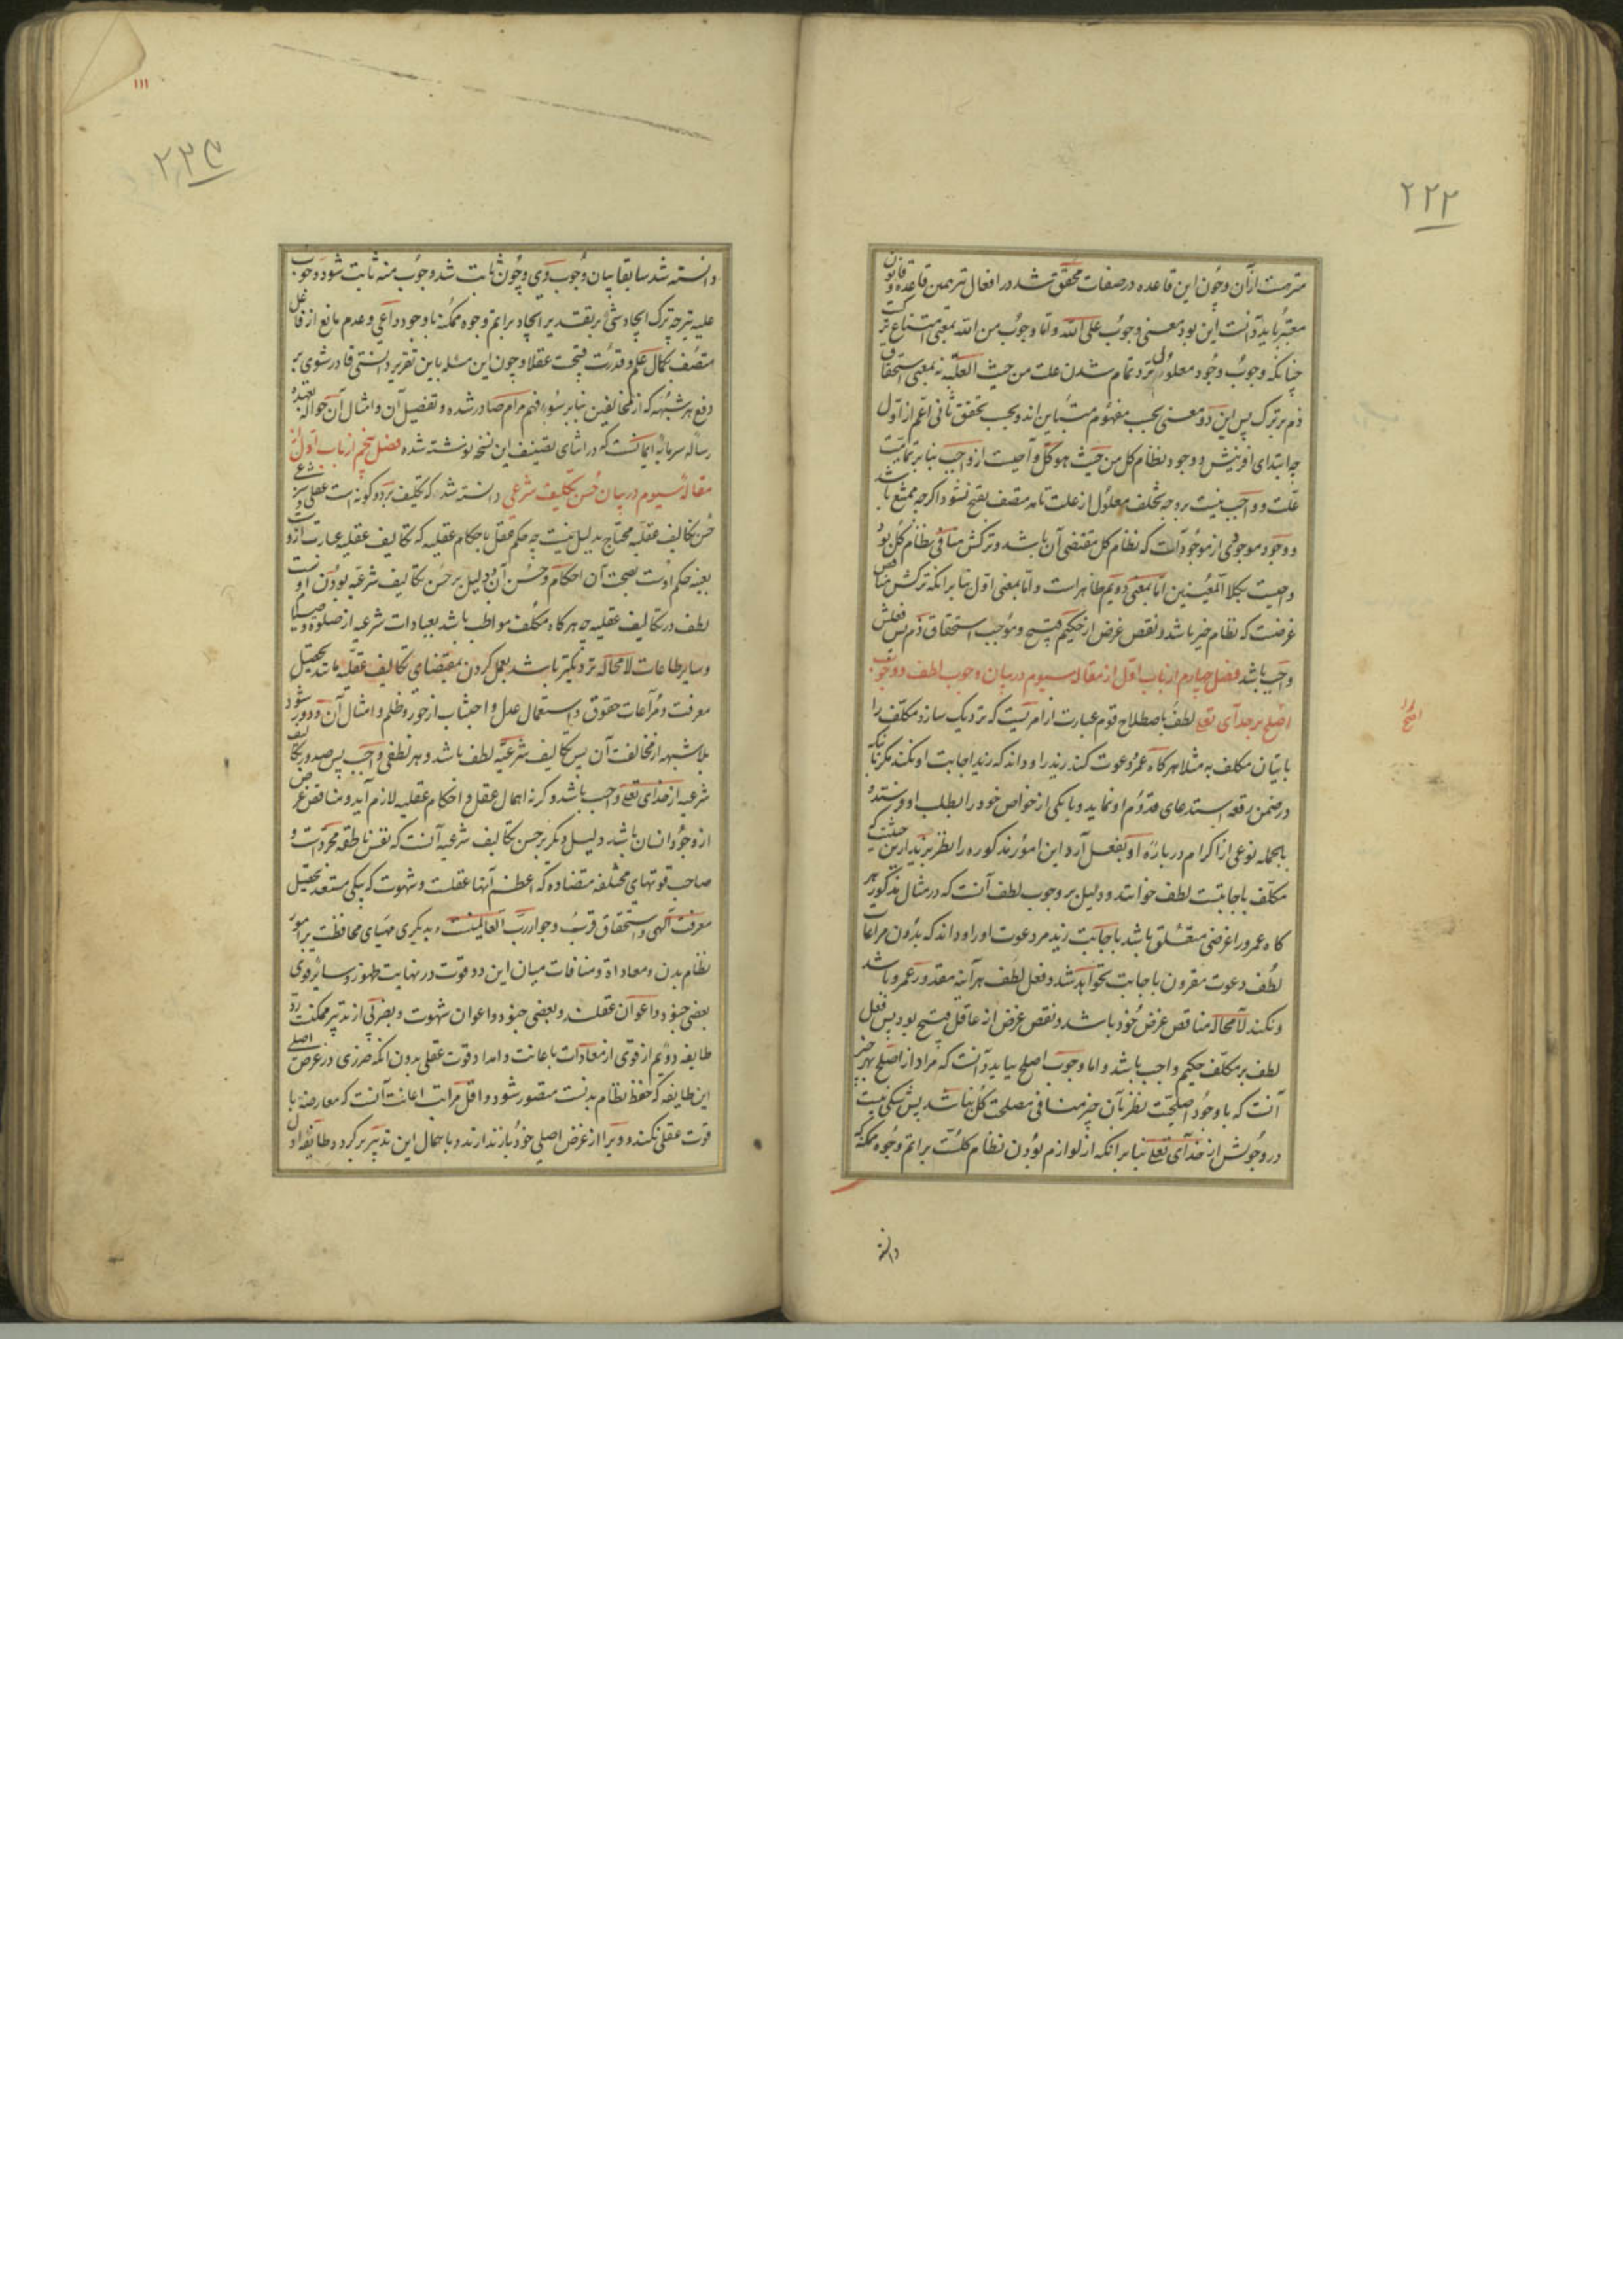 ۲۲۲
مترتبست از آن و چون این قاعده در صفات محقق شد در افعال نیز همین قاعده و قانون
معتبر باید دانست این بود معنی وجوب علی الله و اما وجوب من الله بمعنی امتناع ترک
چنانکه وجوب وجود معلول نزد تمام شدن علت من حیث العلیّه نه بمعنی استحقاق
ذم بر ترک پس این دو معنی بحسب مفهوم متباین اند و بحسب تحقق ثانی اعم از اول
چه ابتدای آفرینش و وجود نظام کل من حیث هو کل واجبست از واجب بنا بر تمامیت
علت و واجب نیست بر وجه تخلف معلول از علت تامه متصف بقبح نشود اگرچه ممتنع باشد
و وجود موجودی از موجودات که نظام کل مقتضی آن باشد و ترکش منافی نظام کل بود
واجبست بکلا المعنیین اما بمعنی دویم ظاهر است و اما بمعنی اول بنا بر آنکه ترکش مناقض
غرضست که نظام خیر باشد و نقض غرض از حکیم قبیح و موجب استحقاق ذم پس فعلش
واجب باشد فصل چهارم از باب اول از مقاله سیوم در بیان وجوب لطف و وجوب
اصلح بر خدای تعالی لطف باصطلاح قوم عبارت از امریست که نزدیک سازد مکلف را
باتیان مکلف به مثلا هرگاه عمرو دعوت کند زید را و داند که زید اجابت او نکند مگر بآنکه
در ضمن رقعه استدعای قدوم او نماید و یا یکی از خواص خود را بطلب او فرستد و
بالجمله نوعی از اکرام درباره او بفعل آرد این امور مذکوره را نظر بزید ازین حیثیت که
مکلف باجابتست لطف خوانند و دلیل بر وجوب لطف آنست که در مثال مذکور هر
گاه عمرو را غرضی متعلق باشد باجابت زید مر دعوت او را و داند که بدون مراعات
لطف دعوت مقرون باجابت نخواهد شد و فعل لطف هر آینه مقدور عمرو باشد
و نکند لامحاله مناقض غرض خود باشد و نقض غرض از عاقل قبیح بود پس فعل
لطف بر مکلف حکیم واجب باشد و اما وجوب اصلح بباید دانست که مراد از اصلح بهر چیز
آنست که با وجود اصلحیت نظر بآن چیز منافی مصلحت کل نباشد پس شکی نیست
در وجوبش از خدای تعالی بنا بر آنکه از لوازم بودن نظام کلست بر اتم وجوه ممکنه
دانسته
۱۱۱
۲۲۳
دانسته شد سابقا بیان وجوب وی و چون ثابت شد وجوب منه ثابت شود وجوب
علیه نیز چه ترک ایجاد شئ بر تقدیر ایجاد بر اتم وجوه ممکنه با وجود داعی و عدم مانع از فاعل
متصف بکمال علم و قدرت قبیحست عقلا و چون این مسئله باین تقریر دانستی قادر شوی بر
دفع هر شبهه که از مخالفین بنا بر سوء فهم مرام صادر شده و تفصیل آن و امثال آن حواله بعهده
رساله سرمایه ایمانست که در اثنای تصنیف این نسخه نوشته شده فصل پنجم از باب اول از
مقاله سیوم در بیان حسن تکلیف شرعی دانسته شد که تکلیف بر دو گونه است عقلی و شرعی
حسن تکالیف عقلیه محتاج بدلیل نیست چه حکم عقل باحکام عقلیه که تکالیف عقلیه عبارت از وست
بعینه حکم اوست بصحت آن احکام و حسن آن و دلیل بر حسن تکالیف شرعیه بودن اوست
لطف در تکالیف عقلیه چه هرگاه مکلف مواظب باشد بعبادات شرعیه از صلوة و صیام
و سایر طاعات لامحاله نزدیکتر باشد بعمل کردن بمقتضای تکالیف عقلیه مانند تحصیل
معرفت و مراعات حقوق و استعمال عدل و اجتناب از جور و ظلم و امثال آن و دورتر شود
بلاشبهه از مخالفت آن پس تکالیف شرعیه لطف باشد و هر لطفی واجب پس صدور تکالیف
شرعیه از خدای تعالی واجب باشد و گرنه اهمال عقل و احکام عقلیه لازم آید و مناقض غرض
از وجود انسان باشد دلیل دیگر بر حسن تکالیف شرعیه آنست که نفس ناطقه مجرد است و
صاحب قوتهای مختلفه متضاده که اعظم آنها عقلست و شهوت که بیکی مستعد تحصیل
معرفت الهی و استحقاق قرب و جوار رب العالمینست و بدیگری مهیای محافظت بر امور
نظام بدن و معادات و منافات میان این دو قوت در نهایت ظهور و سایر قوی
بعضی جنود و اعوان عقلند و بعضی جنود و اعوان شهوت و بضربی از تدبیر ممکنست رد
طایفه دویم از قوی از معادات باعانت و امداد قوت عقلی بدون آنکه ضرری در غرض اصلی
این طایفه که حفظ نظام بدنست متصور شود و اقل مراتب اعانت آنست که معارضه با
قوت عقلی نکنند و ویرا از غرض اصلی خود باز ندارند و با جمال این تدبیر برگردد طایفه اول